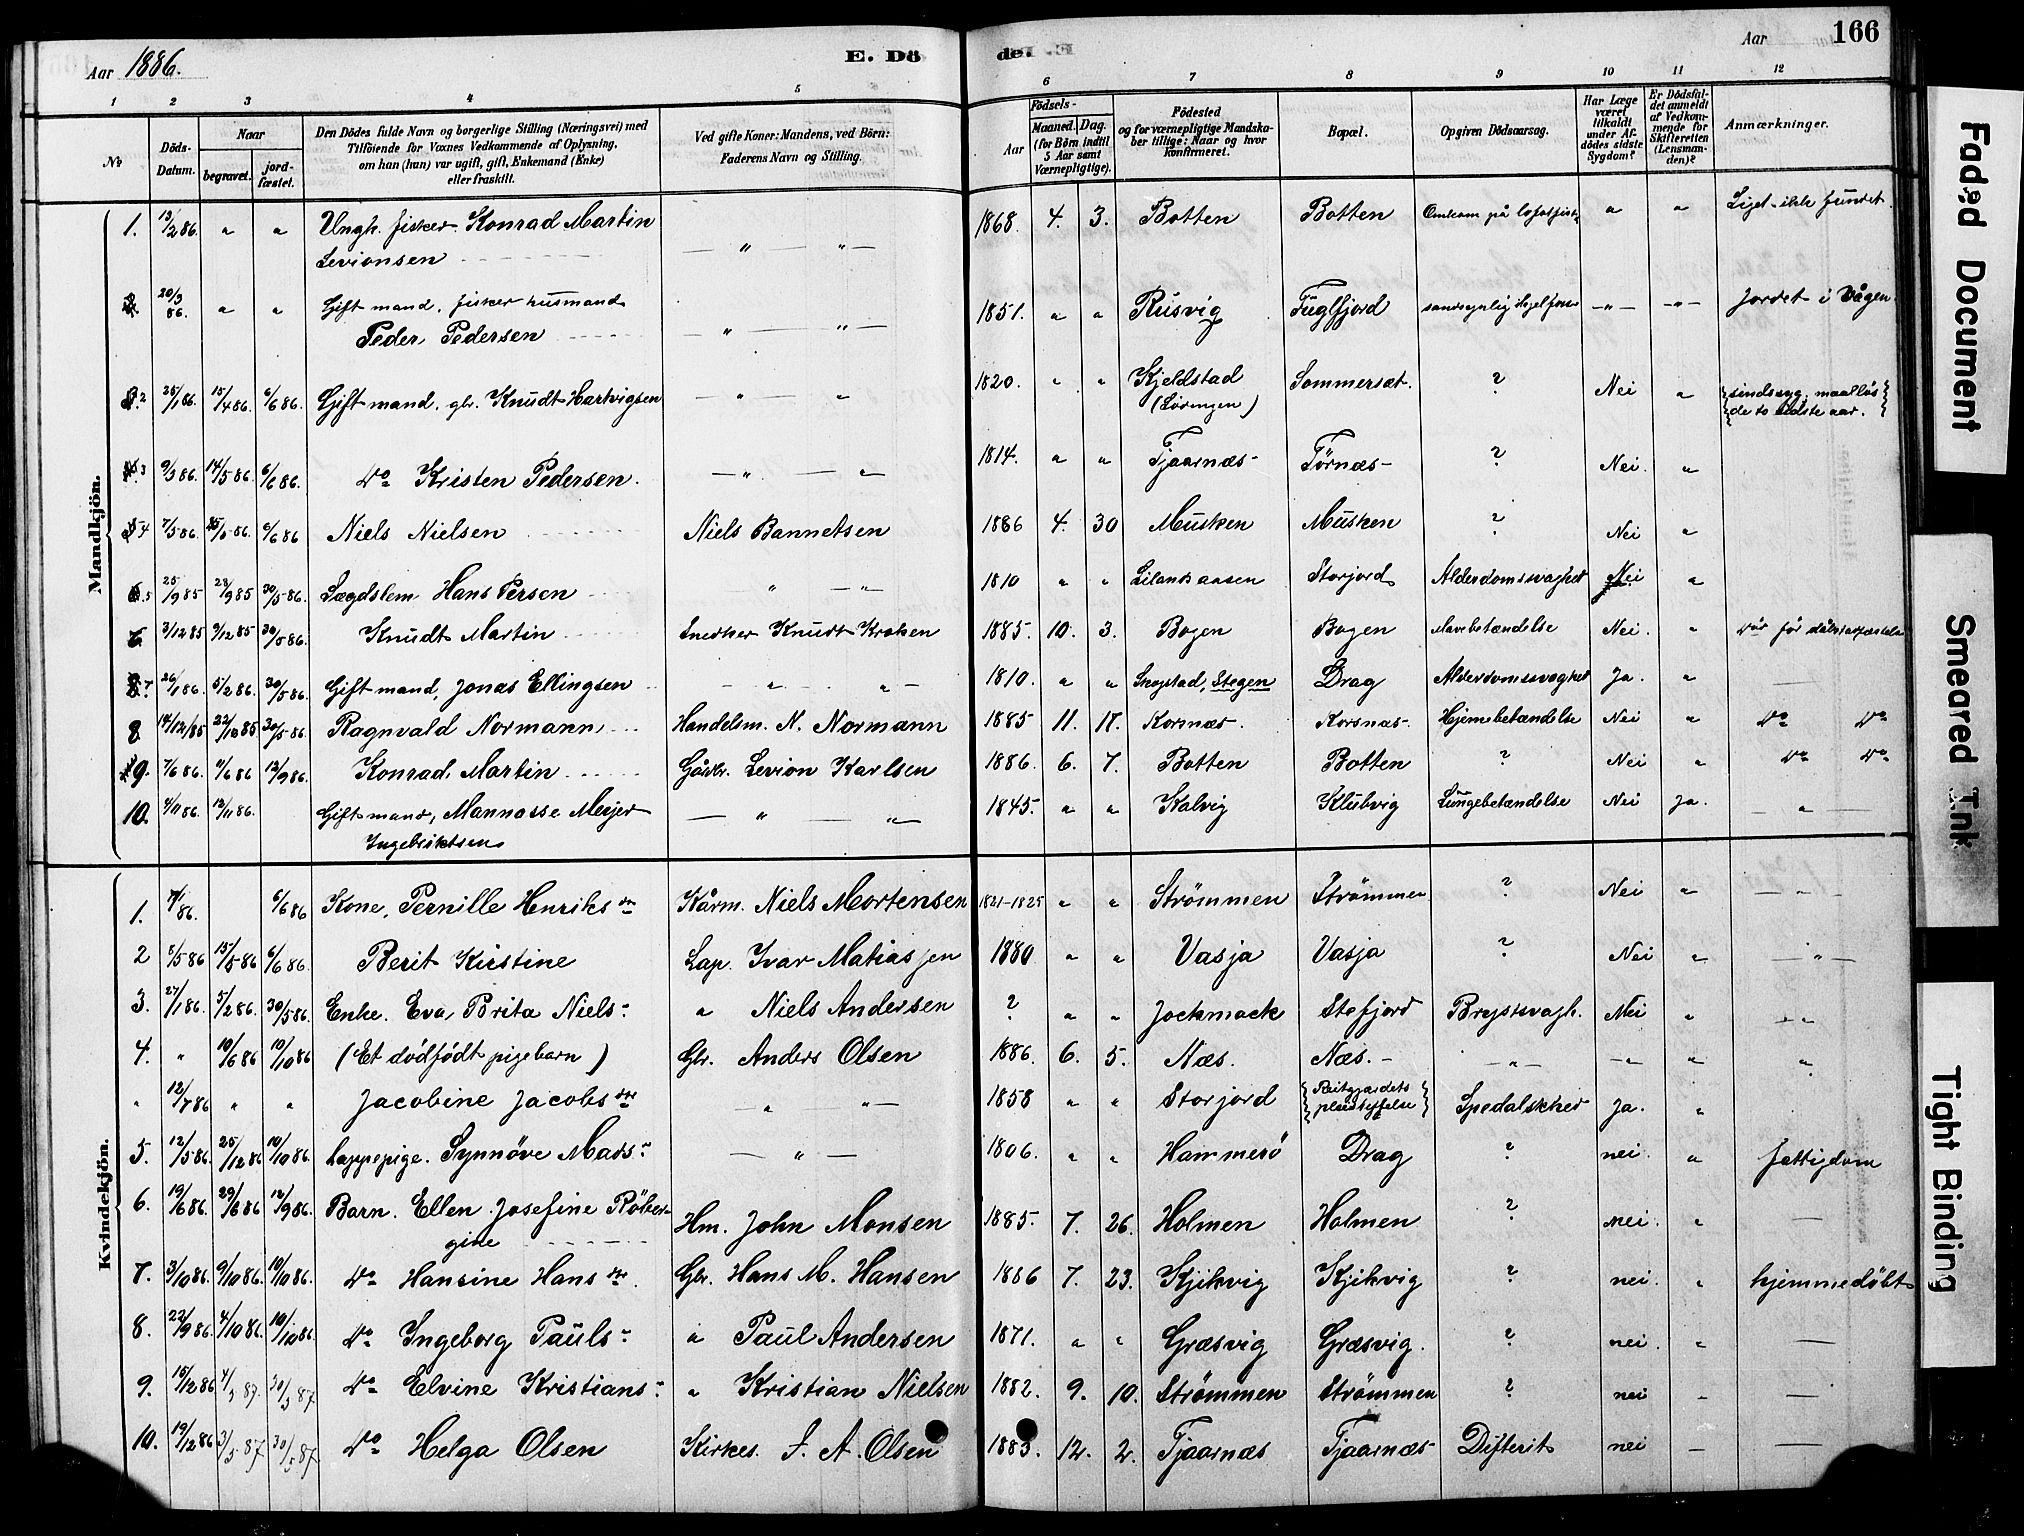 Aar 1886. E. Dö
de. Aar 166
1 2 3 4 5 6 7 8 9 10 11 12
No
Döds-Datum.
Naar
begravet. jord-fæstet.
Den Dödes fulde Navn og borgerlige Stilling (Næringsvei) med
Tilföiende for Voxnes Vedkommende af Oplysning,
om han (hun) var ugift, gift, Enkemand (Enke)
eller fraskilt.
Ved gifte Koner: Mandens, ved Börn:
Faderens Navn og Stilling.
Födsels-
Aar
Maaned. Dag.
(for Börn indtil
5 Aar samt
Værnepligtige).
Födested
og for værnepligtige Mandska-
ber tillige: Naar og hvor
konfirmeret.
Bopæl.
Opgiven Dödsaarsag.
Har Læge
været
tilkaldt
under Af-
dödes sidste
Sygdom?
Er Dödsfal-
det anmeldt
af Vedkom-
mende for
Skifteretten
(Lensman-
den)?
Anmærkninger.
Mandkjön.
1. 13/2 86. " " Ungk. fisker. Konrad Martin — " — " — 1868. 4. 3. Botten Botten Omkom på lofotfisk " " Liget ikke fundet.
Levionsen
20/3 86. " " Gift mand, fisker husmand 1851. " " Rusvig Fuglfjord — " — — " — Jordet i Vågen.
Peder Pedersen — " — " —
2 25/1 86. 15/4 86. 6/6 86. Gift mand, gbr. Knudt Hartvigsen — " — " 1820. " " Kjeldstad Sommersæt. ? Nei " sindssyg, maalløs
(Lødingen) de to sidste aar.
3 9/3 86. 14/5 86. 6/6 86. Do Kristen Pedersen. — " — " 1814. " " Tjaarnæs- Tørnæs- ? Nei. "
4 7/5 86. 6/6 86 Niels Nielsen Niels Bannetsen 1886 4. 30 Musken Musken ? Nei "
5 25/9 85 28/9 85 30/5 86. Lægdslem Hans Persen " — " — 1810 " " Storjord Alderdomssvaghet Nei "
6 3/12 85 9/12 85 30/5 86. Knudt Martin Snedker Knudt Kroken 1885. 10. 3. Bogen Bogen Mavebetændelse Nei. "
7 26/1 86. 5/2 86. 30/5 86. Gift mand, Jonas Ellingsen — " — " — 1810. " " Skogstad, Stegen Drag Alderdomssvaghet Ja. " —
8 14/12 85 30/5 86. Ragnvald Normann Handelsm. N. Normann 1885 11. 17. Korsnæs. Korsnæs- Hjernebetændelse Nei " Do Do
9. 7/6 86. 11/6 86 12/9 86. Konrad Martin Gårdbr. Levion Karlsen 1886. 6. 7. Botten Botten ? Nei " Do Do
10. 4/11 86. 12/11 86. Gift mand, Mannasse Meijer — " — " — 1845. " " Kalvig Klubvig Lungebetændelse Nei Ja. — " —
Ingebriktsen
Kvindekjön.
1. 6/6 86 Kone, Pernille Henriks dr Kårm. Niels Mortensen 1821-1825 " " Strømmen Strømmen ? Nei " — " —
2 8/5 86 15/5 86 6/6 86. Berit Kirstine Lap. Ivar Matiassen 1880 " " Vasja Vasja ? Nei " — " —
3. 27/1 86. 5/2 86. 30/5 86. Enke. Eva Brita Niels- " Niels Andersen ? " " Jockmock Stefjord Brystsvagh. Nei " — " —
4. " 10/6 86 10/10 86 (Et dödfödt pigebarn) Gbr. Anders Olsen 1886. 6. 5. Næs. Næs. — " — — " " "
" 12/7 86 " " Jacobine Jacobs dtr — " — " — 1858 " " Storjord Reitgjærdets pleiestiftelse Spedalskhed Ja. "
5. 12/5 86. 25/12 86 10/10 86. Lappepige. Synnöve Mads- — " — 1806. " " Hammerö Drag ? nei. " fattigdom
6. 19/6 86. 29/6 86 12/9 86. Barn. Ellen Josefine Röber- Hm. John Monsen 1885. 7. 26. Holmen Holmen ? nei. " —
gine
7. 3/10 86. 9/10 86. 10/10 86. Do Hansine Hans dtr. Gbr. Hans M. Hansen 1886 7. 23. Kjikvig Kjikvig ? nei. " hjemmedöbt
8. 22/9 86. 4/10 86. 10/10 86. Do Ingeborg Pauls- " Paul Andersen 1871. " " Græsvig Græsvig. ? nei. " —
9. 15/12 86 4/3 87. Do Elvine Kristians- " Kristian Nielsen 1882. 9. 10. Strömmen Strömmen ? nei — —
10. 19/12 86 3/5 87 30/5 87 Do Helga Olsen Kirkes. J. A. Olsen 1883. 12. 2. Tjaarnæs Tjaarnæs- Difterit nei — —
Faded Document
Smeared Ink
Tight Binding